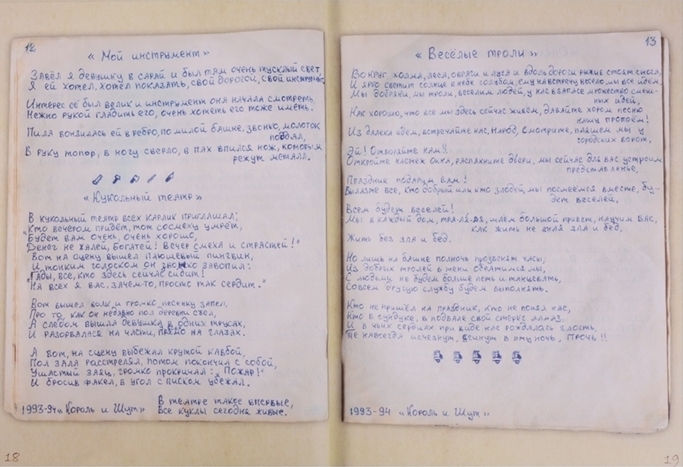 12
« Мой инструмент »
Завёл я девушку в сарай и был там очень тусклый свет,
Я ей хотел, хотел показать, свой дорогой, свой инструмент.
Интерес её был велик и инструмент она начала смотреть,
Нежно рукой гладить его, очень хотеть его тоже иметь.
Пила вонзилась ей в ребро, по милой башне, звонко, молоток
попал,
В руку топор, в ногу сверло, в пах впился нож, которым
режут металл.
« Кукольный театр »
В кукольный театр всех карлик приглашал:
"Кто вечером придёт, тот со смеху умрёт,
Будет вам очень, очень хорошо,
Денег не жалей, богатей! Вечер смеха и страстей!"
Вот на сцену вышел плюшевый пингвин,
И тонким голоском он звонко завопил:
"Гады, все, кто здесь сейчас сидит!
На всех я вас, зачем-то, просто так сердит."
Вот вышел волк и громко песенку запел,
Про то, как он недавно пол деревни съел,
А следом вышла девушка в одних трусах,
И разорвалась на части, прямо на глазах.
А вот, на сцену выбежал крутой ковбой,
Пол зала расстрелял, потом покончил с собой,
Ушастый заяц, громко прокричал: "Пожар!"
И бросив факел, в угол с писком убежал.
В театре такое впервые,
Все куклы сегодня живые.
1993-94 «Король и Шут»
18
13
« Весёлые тролли »
Вокруг холма, леса, овраги и луга и вдоль дороги рыжие стоят стога,
И ярко светит солнце в небе голубом, ему навстречу весело мы все идём.
Мы добряки, мы тролли, веселим людей, у нас в запасе множество смеш-
ных идей,
Как хорошо, что все мы здесь сейчас живём, давайте хором песню
нашу пропоём!
Из далека идём, встречайте нас, народ, смотрите, пляшем мы у
городских ворот.
Эй! Откройте нам!!
Откройте настеж окна, распахните двери, мы сейчас для вас устроим
представленье,
Праздник подарим вам!
Вылазте все, кто добрый или кто злобой, мы посмеёмся вместе, бу-
дет веселей,
Всем будет веселей!
Мы в каждый дом, тра-ля-ля, шлём большой привет, научим вас,
как жить не зная зла и бед,
Жить без зла и бед.
Но лишь на башне полночь прозвонят часы,
Из добрых троллей в тени обратимся мы,
С людьми не будем больше петь и танцевать,
Совсем другую службу будем выполнять.
Кто не пришёл на праздник, кто не понял нас,
Кто в сундуке, в подвале свой сторус алмаз,
И в чьих сердцах при виде нас рождалась злость,
Те навсегда исчезнут, сгинут в эту ночь, Прочь!!
1993-94 «Король и Шут»
19